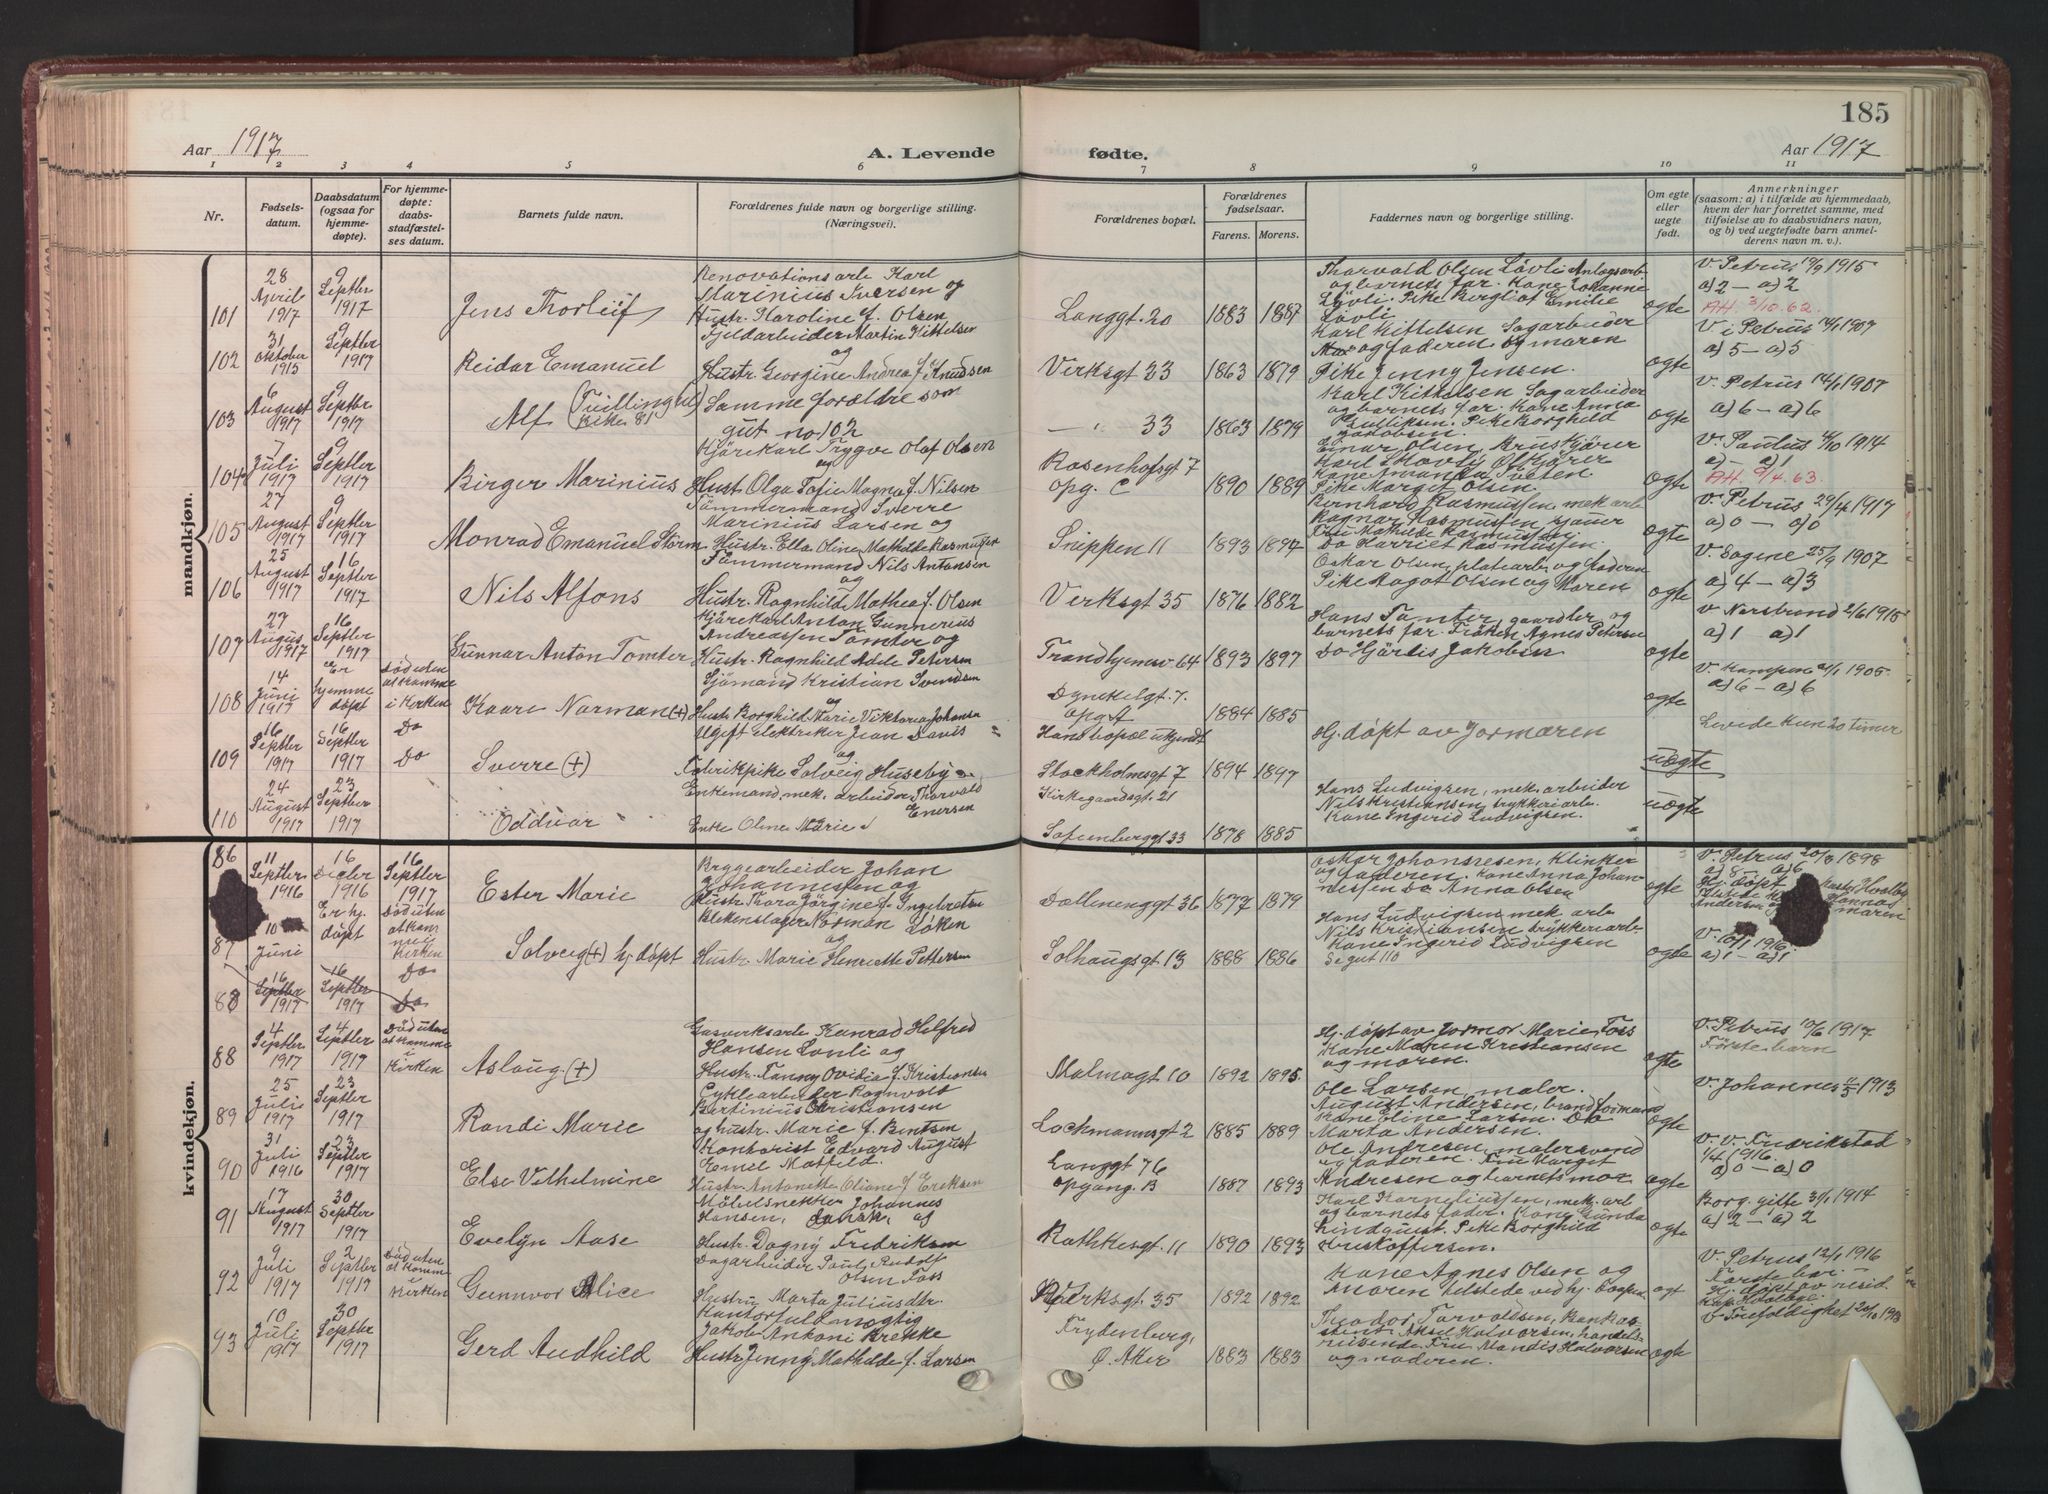 185
Aar 1917
A. Levende
fødte.
Aar 1917
1 2 3 4 5 6 7 8 9 10 11
Nr.
Fødsels-
datum.
Daabsdatum
(ogsaa for
hjemme-
døpte).
For hjemme-
døpte:
daabs-
stadfæstel-
ses datum.
Barnets fulde navn.
Forældrenes fulde navn og borgerlige stilling.
(Næringsvei).
Forældrenes bopæl.
Forældrenes
fødselsaar.
Farens. Morens.
Faddernes navn og borgerlige stilling.
Om egte
eller
uegte
født.
Anmerkninger
(saasom: a) i tilfælde av hjemmedaab,
hvem der har forrettet samme, med
tilføielse av to daabsvidners navn,
og b) ved uegtefødte barn anmel-
derens navn m. v.).
mandkjøn.
101
28
April
1917
9
Septbr
1917
Jens Thorleif
Renovationsarb Karl
Marinius Iversen og
Hustr. Karoline f. Olsen
Langgt. 20
1883 1887
Thorvald Olsen Lövli Anlægsarb.
og barnets far. Kone Johanne
Lövli. Pike Bergliot Emilie
Lövli
egte
V. Petrus 19/9 1915
a) 2 – a) 2
AH. 3/10.62.
102
31
Oktober
1915
9
Septbr
1917
Reidar Emanuel
Fjeldarbeider Martin Kittelsen
og
Hustr. Georgine Andrea f. Knudsen
Verksgt 33
1863 1879
Karl Kittelsen Sagarbeider
og faderen og moren
Pike Jenny Jensen.
egte
V i Petrus 14/1 1907
a) 5 – a) 5
103
6
August
1917
9
Septbr.
1917
Alf
Samme forældre som
gut no 102
33
1863 1879
Karl Kittelsen Sagarbeider
og barnets far. Kone Anna
Gulliksen. Pike Borghild
Jakobsen.
egte
V. Petrus 14/1 1907
a) 6 – a) 6
104
7
Juli
1917
9
Septbr
1917
Birger Marinius
Kjørekarl Trygve Olaf Olsen
og
Hust. Olga Sofie Magna f. Nilsen
Rosenhofsgt 7
opg. C
1890 1889
Einar Olsen, Bruskjører
Pike Margit Olsen.
egte
V. Paulus 4/10 1914
AH. 9/4.63.
105
27
August
1917
9
Septbr
1917
Monrad Emanuel Storm
Tömmermand Sverre
Marinius Larsen og
Hustr. Ella Oline Mathilde Rasmussen
Snippen 11
1893 1894
Bernhard Rasmussen, mek arb
Ragnar Rasmussen, gjøver
Fru Mathilde Rasmussen
Do Harriet Rasmussen.
egte
V. Petrus 29/4 1917
a) 0 – a) 0
106
25
August
1917
16
Septbr
1917
Nils Alfons
Tömmermand Nils Antonsen
og
Hustr. Ragnhild Mathea f. Olsen
Verksgt 35
1876 1882
Oskar Olsen, platearb. og Faderen
Pike Ragot Olsen og Moren
egte
V. Sagene 25/9 1907
a) 4 – a) 3
107
27
August
1917
16
Septbr
1917
Gunnar Anton Tomter
Kjørekarl Anton Gunnerius
Andreassen Tomter og
Hustr. Ragnhild Adele Petersen
Trondhjemsv. 64
1893 1897
Hans Tomter, gaardbr og
barnets far. Frøken Agnes Petersen
Do Hjørdis Jakobsen
egte
v. Norstrand 2/6 1915
a) 1 a) 1
108
14
Juni
1917
Er
hjemme
døpt
Død uten
at komme
i Kirken
Kaare Norman (+)
Sjömand Kristian Svendsen
og
Hustr Borghild Marie Viktoria Johansen
Dynekilgt. 7.
opgt
1884 1885
egte
V. Kampen 21/1 1905
a) 6 – a) 6
109
16
Septbr
1917
16
Septbr
1917
Do
Do
Sverre (+)
Ugift elektriker Jean Davis
og
Fabrikpike Solveig Huseby
Hans bopæl ukjendt
Stockholmsgt 7
1894 1897
Hj. døpt av Jormoren
uegte
Levede kun 20 timer
110
24
August
1917
23
Septbr
1917
Oddvar
Enkemand, mek. arbeider, Thorvald
Enersen
Enke Oline Marie
Kirkegaardsgt. 21
Sofienberggt 33
1878 1885
Hans Ludvigsen, mek. arbeider
Nils Kristiansen, trykkeriarb.
Kone Ingerid Ludvigsen.
uegte
kvindekjøn.
86
11
Septbr
1916
16
1916
16
Septbr
1917
Ester Marie
Bryggearbeider Johan
Johannesen og
Hustr. Thora Jörgine f. Ingebretsen
Dælenenggt 36
1877 1879
Oskar Johannesen, Klinker
og faderen. Kone Anna Johan-
nessen Do Anna Olsen
egte
V. Petrus 20/8 1898
a) 8 – a) 6
Hj. døpt
87
10
Juni
Er hj.
døpt
Död uten
at kom
me i
Kirken
Solveig (+) hj døpt
Blikkenslager Norman Løken
og
Hustr. Marie Henriette Pettersen
Solhaugsgt 13
1888 1886
Hans Ludvigsen mek arb
Nils Kristiansen trykkeriarb.
Kone Ingerid Ludvigsen
Se gut 110
egte
V. 10/1 1916.
a) 1 – a) 1
88
16
Septbr
1917
16
Septbr
1917
Do
Do
88
4
Septbr
1917
4
Septbr
1917
Död uten
at komme
i
Kirken
Aslaug (+)
Gasverksarb Konrad Hilfred
Hansen Lonli og
Hustr. Fanny Ovidia f. Kristiansen
Malmøgt 10
1892 1895.
Hj. døpt av Jormor Marie Foss
Kone Maren Kristiansen
og moren.
egte
V. Petrus 10/6 1917
Første barn
89
25
Juli
1917
23
Septbr
1917
Randi Marie
Cyklearbeider Ragnvald
Bertinius Christiansen
og hustr. Marie f. Bentsen
Lochmannsgt 2
1885 1889
Ole Larsen, maler.
August Andersen, brandformand
Kone Eline Larsen. Do
Marta Andersen.
egte
V. Johannes 11/5 1913
90
31
Juli
1916
23
Septbr
1917
Else Vilhelmine
Kontorist Edvard August
Emil Matfeld.
Hustr. Antonette Oliane f Eriksen
Langgt 76
opgang. B
1887 1893
Ole Andresen, malersvend
og faderen. Fru Margit
Andresen og barnets mor
egte
V. v. Fredrikstad
1/4 1916.
a) 0 – a) 0
91
17
August
1917
30
Septbr
1917
Evelyn Aase
Möbelsnekker Johannes
Hansen, dansk, og
Hustr. Dagny Fredriksen
Rathkesgt. 11
1890 1893
Karl Kornelinssen, mek. arb
og barnets fader. Kone Gunda
Lindquist. Pike Borghild
Kristoffersen.
egte
Borg. gifte 31/1 1914
a) 2 – a) 2
92
9
Juli
1917
2
Septbr
1917
Död uten
at komme
i Kirken
Gunnvor Alice
Dagarbeider Paul Rudolf
Olsen Foss
Hustru Marta Juliusdtr.
Verksgt. 35
1892 1892
Kone Agnes Olsen og
Moren tilstede ved hj. daapen
egt
V. Petrus 12/1 1916
Første bar –
Hj. døpt av resid.
93
10
Juli
1917
30
Septbr
1917
Gerd Audhild
Kontorfuldmægtig
Jakob Antoni Brekke
Hustr. Jenny Mathilde f. Larsen
Frydenberg,
Ø. Aker
1883 1883
Theodor Torvaldsen, Bankas-
sistent. Aksel Halvorsen, handels-
reisende. Fru Mandis Halvorsen
og moderen.
egte
V Trefoldighet 20/10 1913